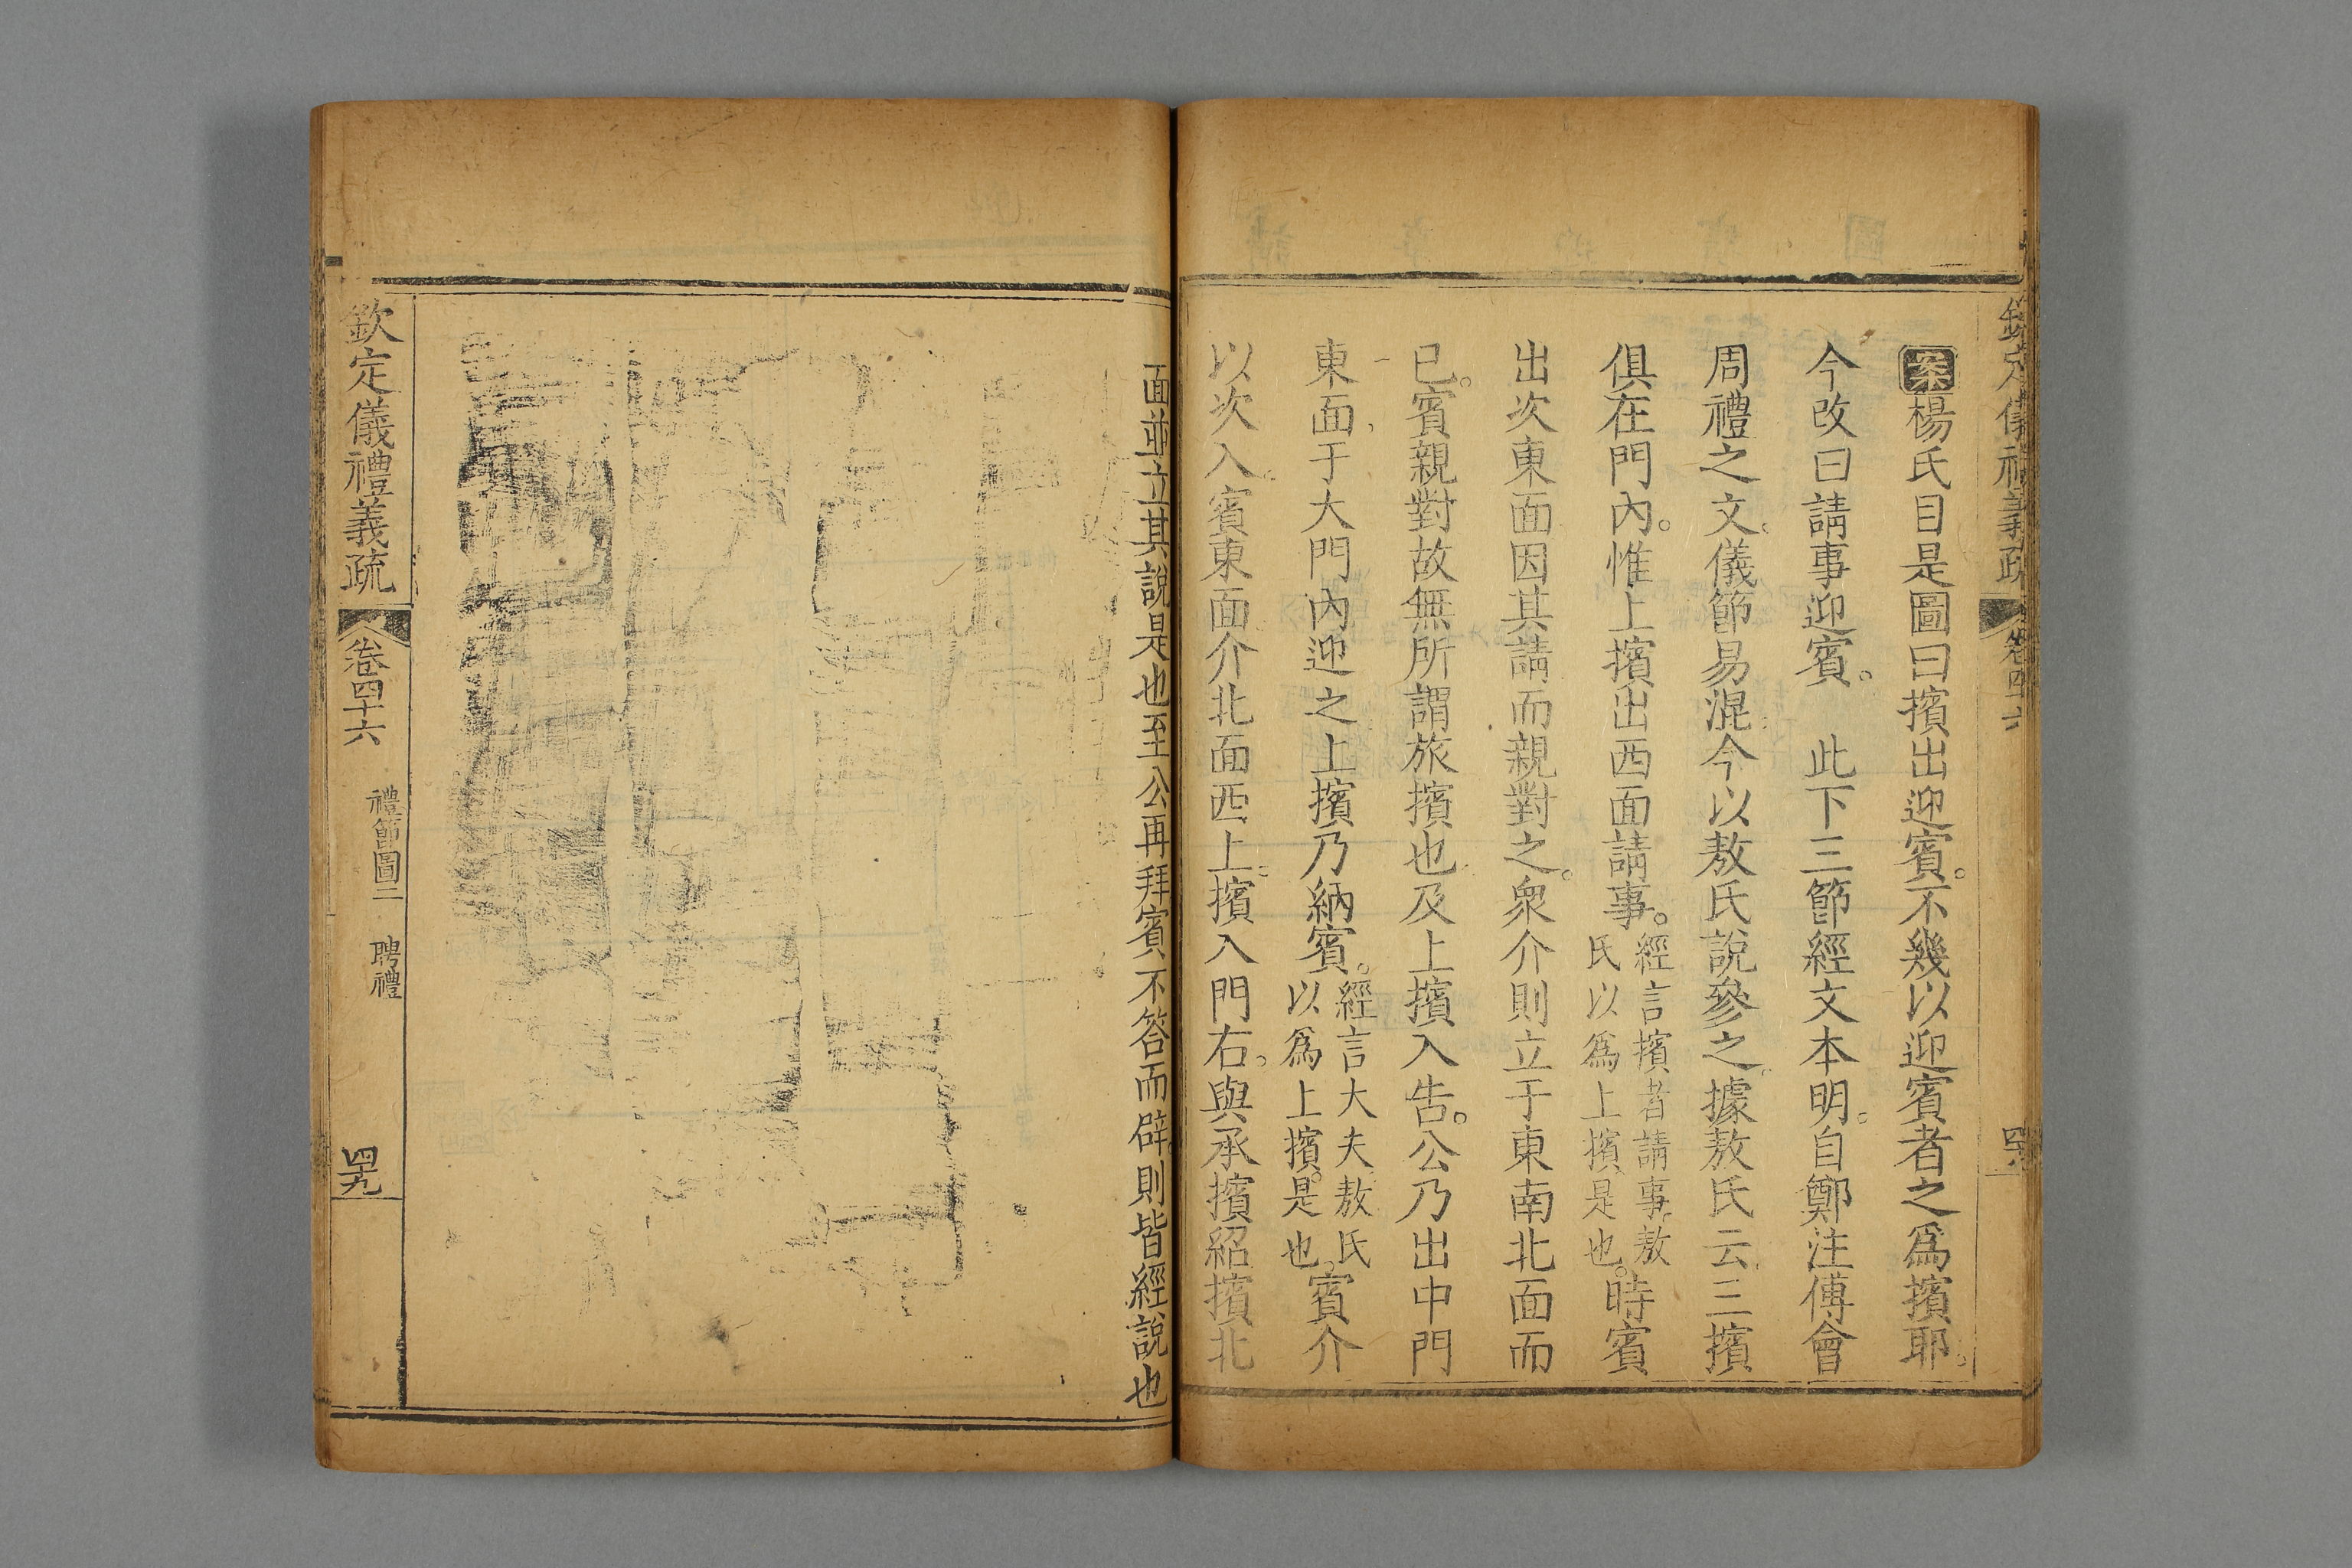 欽定儀禮義疏 卷四十六
案楊氏目是圖曰擯出迎賓。不幾以迎賓者之爲擯耶。
今改曰請事迎賓。 此下三節經文本明。自鄭注傅會
周禮之文。儀節易混。今以敖氏說參之。據敖氏云三擯
俱在門內。惟上擯出西面請事。經言擯者請事敖氏以爲上擯是也。時賓
出次東面因其請而親對之。衆介則立于東南北面而
已。賓親對故無所謂旅擯也及上擯入告。公乃出中門
東面于大門內迎之上擯乃納賓。經言大夫敖氏以爲上擯。是也。賓介
以次入。賓東面介北面西上。擯入門右。與承擯紹擯北
面並立其說是也至公再拜賓不答而辟則皆經說也
欽定儀禮義疏 卷四十六 禮節圖二 聘禮 四十九